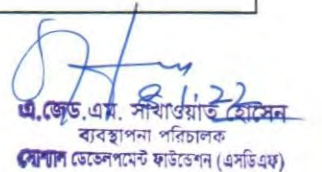 ৪/১/২২
এ.জেড.এম. সাখাওয়াত হোসেন
ব্যবস্থাপনা পরিচালক
সোশাল ডেভেলপমেন্ট ফাউন্ডেশন (এসডিএফ)